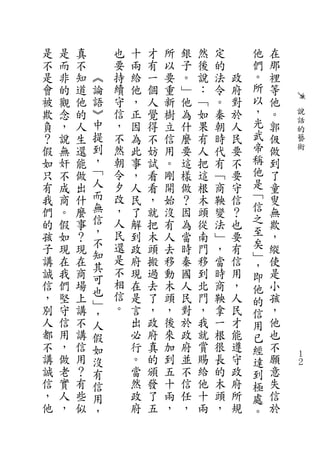 在那裡等他。郭伋做到了童叟無欺，縱使是小孩，他也不願意失信於
他們。所以，光武帝稱他是「信之至矣」，即他的信用已經達到極處。
政府對於人民要不要守信？也要有信用，人民才能遵守政府所規
定的法令。秦朝時代有「商鞅變法」，當時商鞅拿一根很長的木頭，
然後說：「如果有人把這根木頭從南門移到北門，我就賞賜給他十兩
銀子。」他為什麼要這樣做？因為當時秦國人民對於政府並不信任，
所以要重新樹立信用。剛開始沒有人去移動木頭，後來加到五十兩，
才有一個人覺得不妨試看看，就把木頭搬過去了，政府真的頒發了五
十兩給他，正因為此事，人民了解到政府現在是言出必行。當然政府
也要持續守信，不然朝令夕改，人民還是不相信。
《論語》中提到，「人而無信，不知其可也」，人假如沒有信用，
真不知道他的人生還能做出什麼事？現在商場上講不講信用？有些似
是而非的觀念，說無奸不成商。假如現在我們堅守信用，做老實人，
是不是會被欺負？假如只有我們的孩子講誠信，別人都不講誠信，他
說話的藝術
12